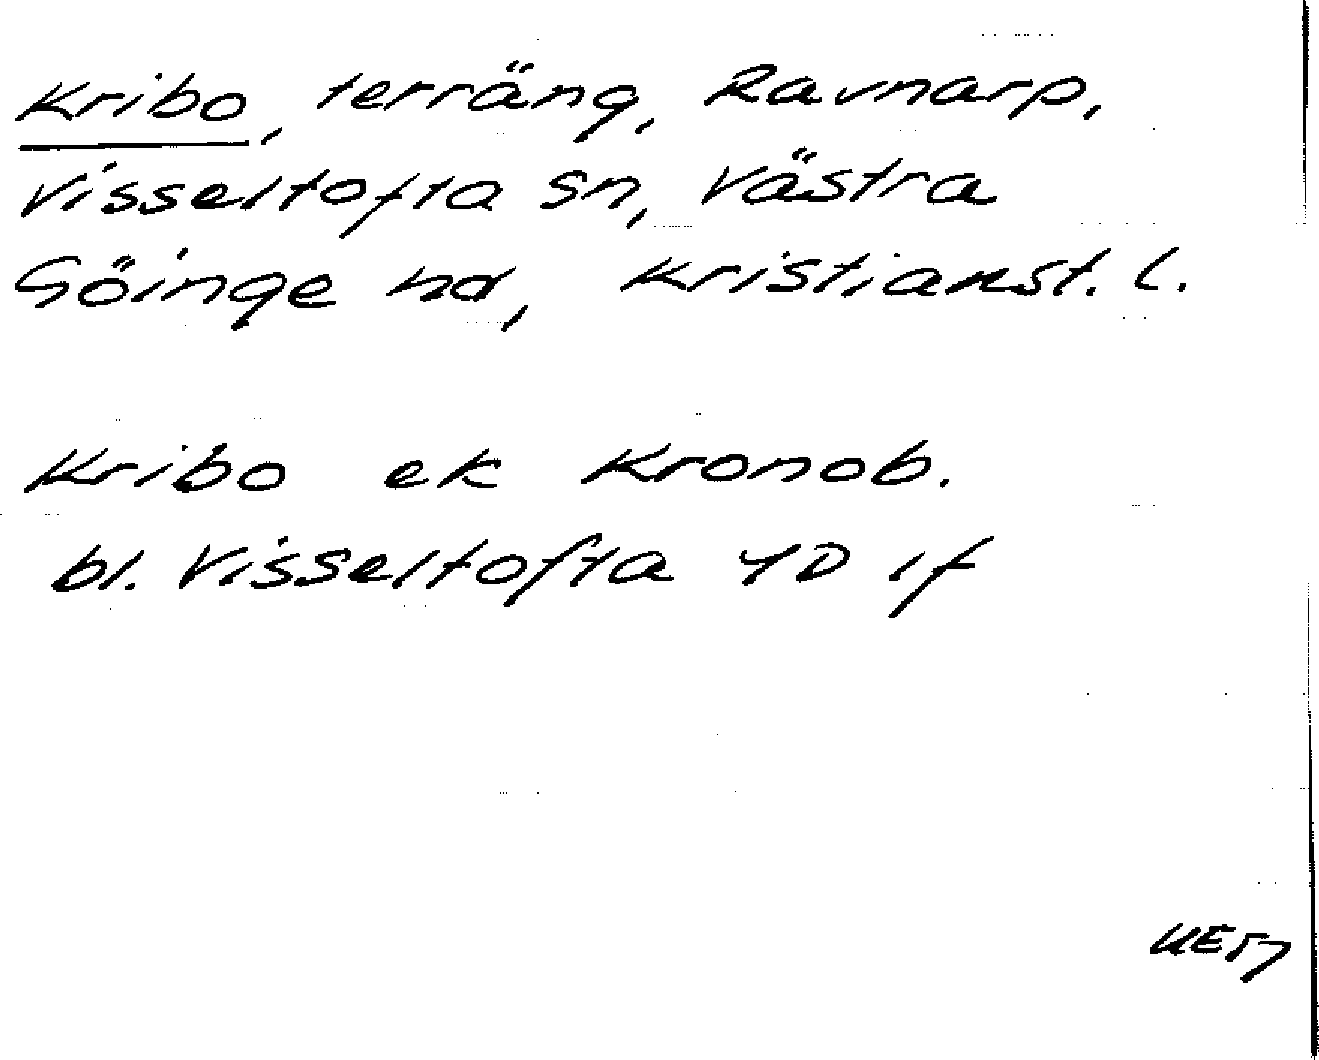 Kribo, terräng, Ravnarp,
Visseltofta sn, Västra
Göinge hd, Kristianst. l.
Kribo ek Kronob.
bl. Visseltofta 4D 1f